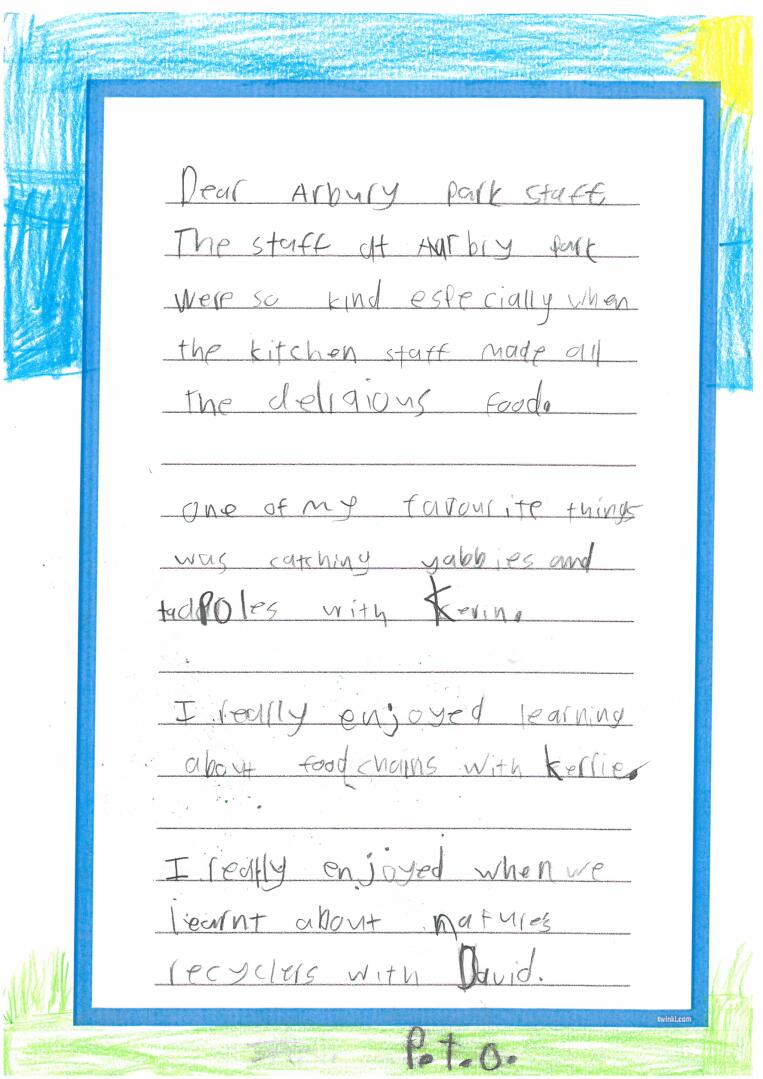 Dear Arbury park staff,
The staff at Aarbry park
were so kind especially when
the kitchen staff made all
the deligious food.
one of my favourite things
was catching yabbies and
tadpoles with Kevin.
I really enjoyed learning
about food chains with kerrie.
I really enjoyed when we
learnt about natures
recyclers with David.
twinkl.com
P.t.o.